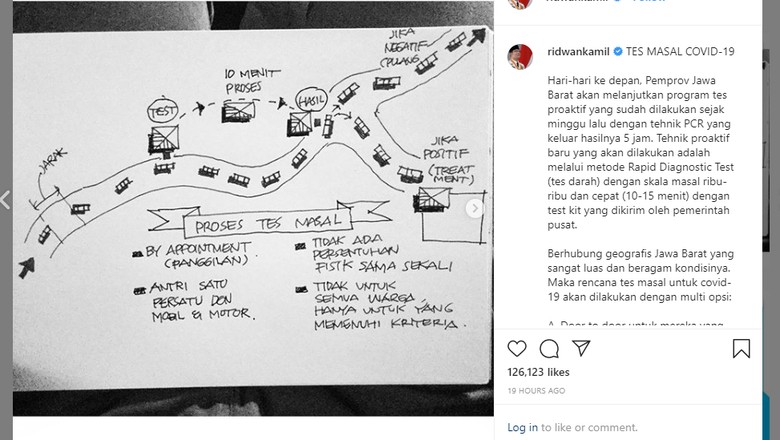 JIKA
NEGATIF
(PULANG
10 MENIT
PROSES
TEST
HASIL
JIKA
POSITIF
(TREAT
MENT)
JARAK
PROSES TES MASAL
BY APPOINTMENT
(PANGGILAN)
ANTRI SATU
PERSATU DGN
MOBIL & MOTOR.
TIDAK ADA
PERSENTUHAN
FISIK SAMA SEKALI
TIDAK UNTUK
SEMUA WARGA,
HANYA UNTUK YANG
MEMENUHI KRITERIA.
ridwankamil TES MASAL COVID-19
Hari-hari ke depan, Pemprov Jawa
Barat akan melanjutkan program tes
proaktif yang sudah dilakukan sejak
minggu lalu dengan tehnik PCR yang
keluar hasilnya 5 jam. Tehnik proaktif
baru yang akan dilakukan adalah
melalui metode Rapid Diagnostic Test
(tes darah) dengan skala masal ribu-
ribu dan cepat (10-15 menit) dengan
test kit yang dikirim oleh pemerintah
pusat.
Berhubung geografis Jawa Barat yang
sangat luas dan beragam kondisinya.
Maka rencana tes masal untuk covid-
19 akan dilakukan dengan multi opsi:
A. Door to door untuk mereka yang
126,123 likes
19 HOURS AGO
Log in to like or comment.